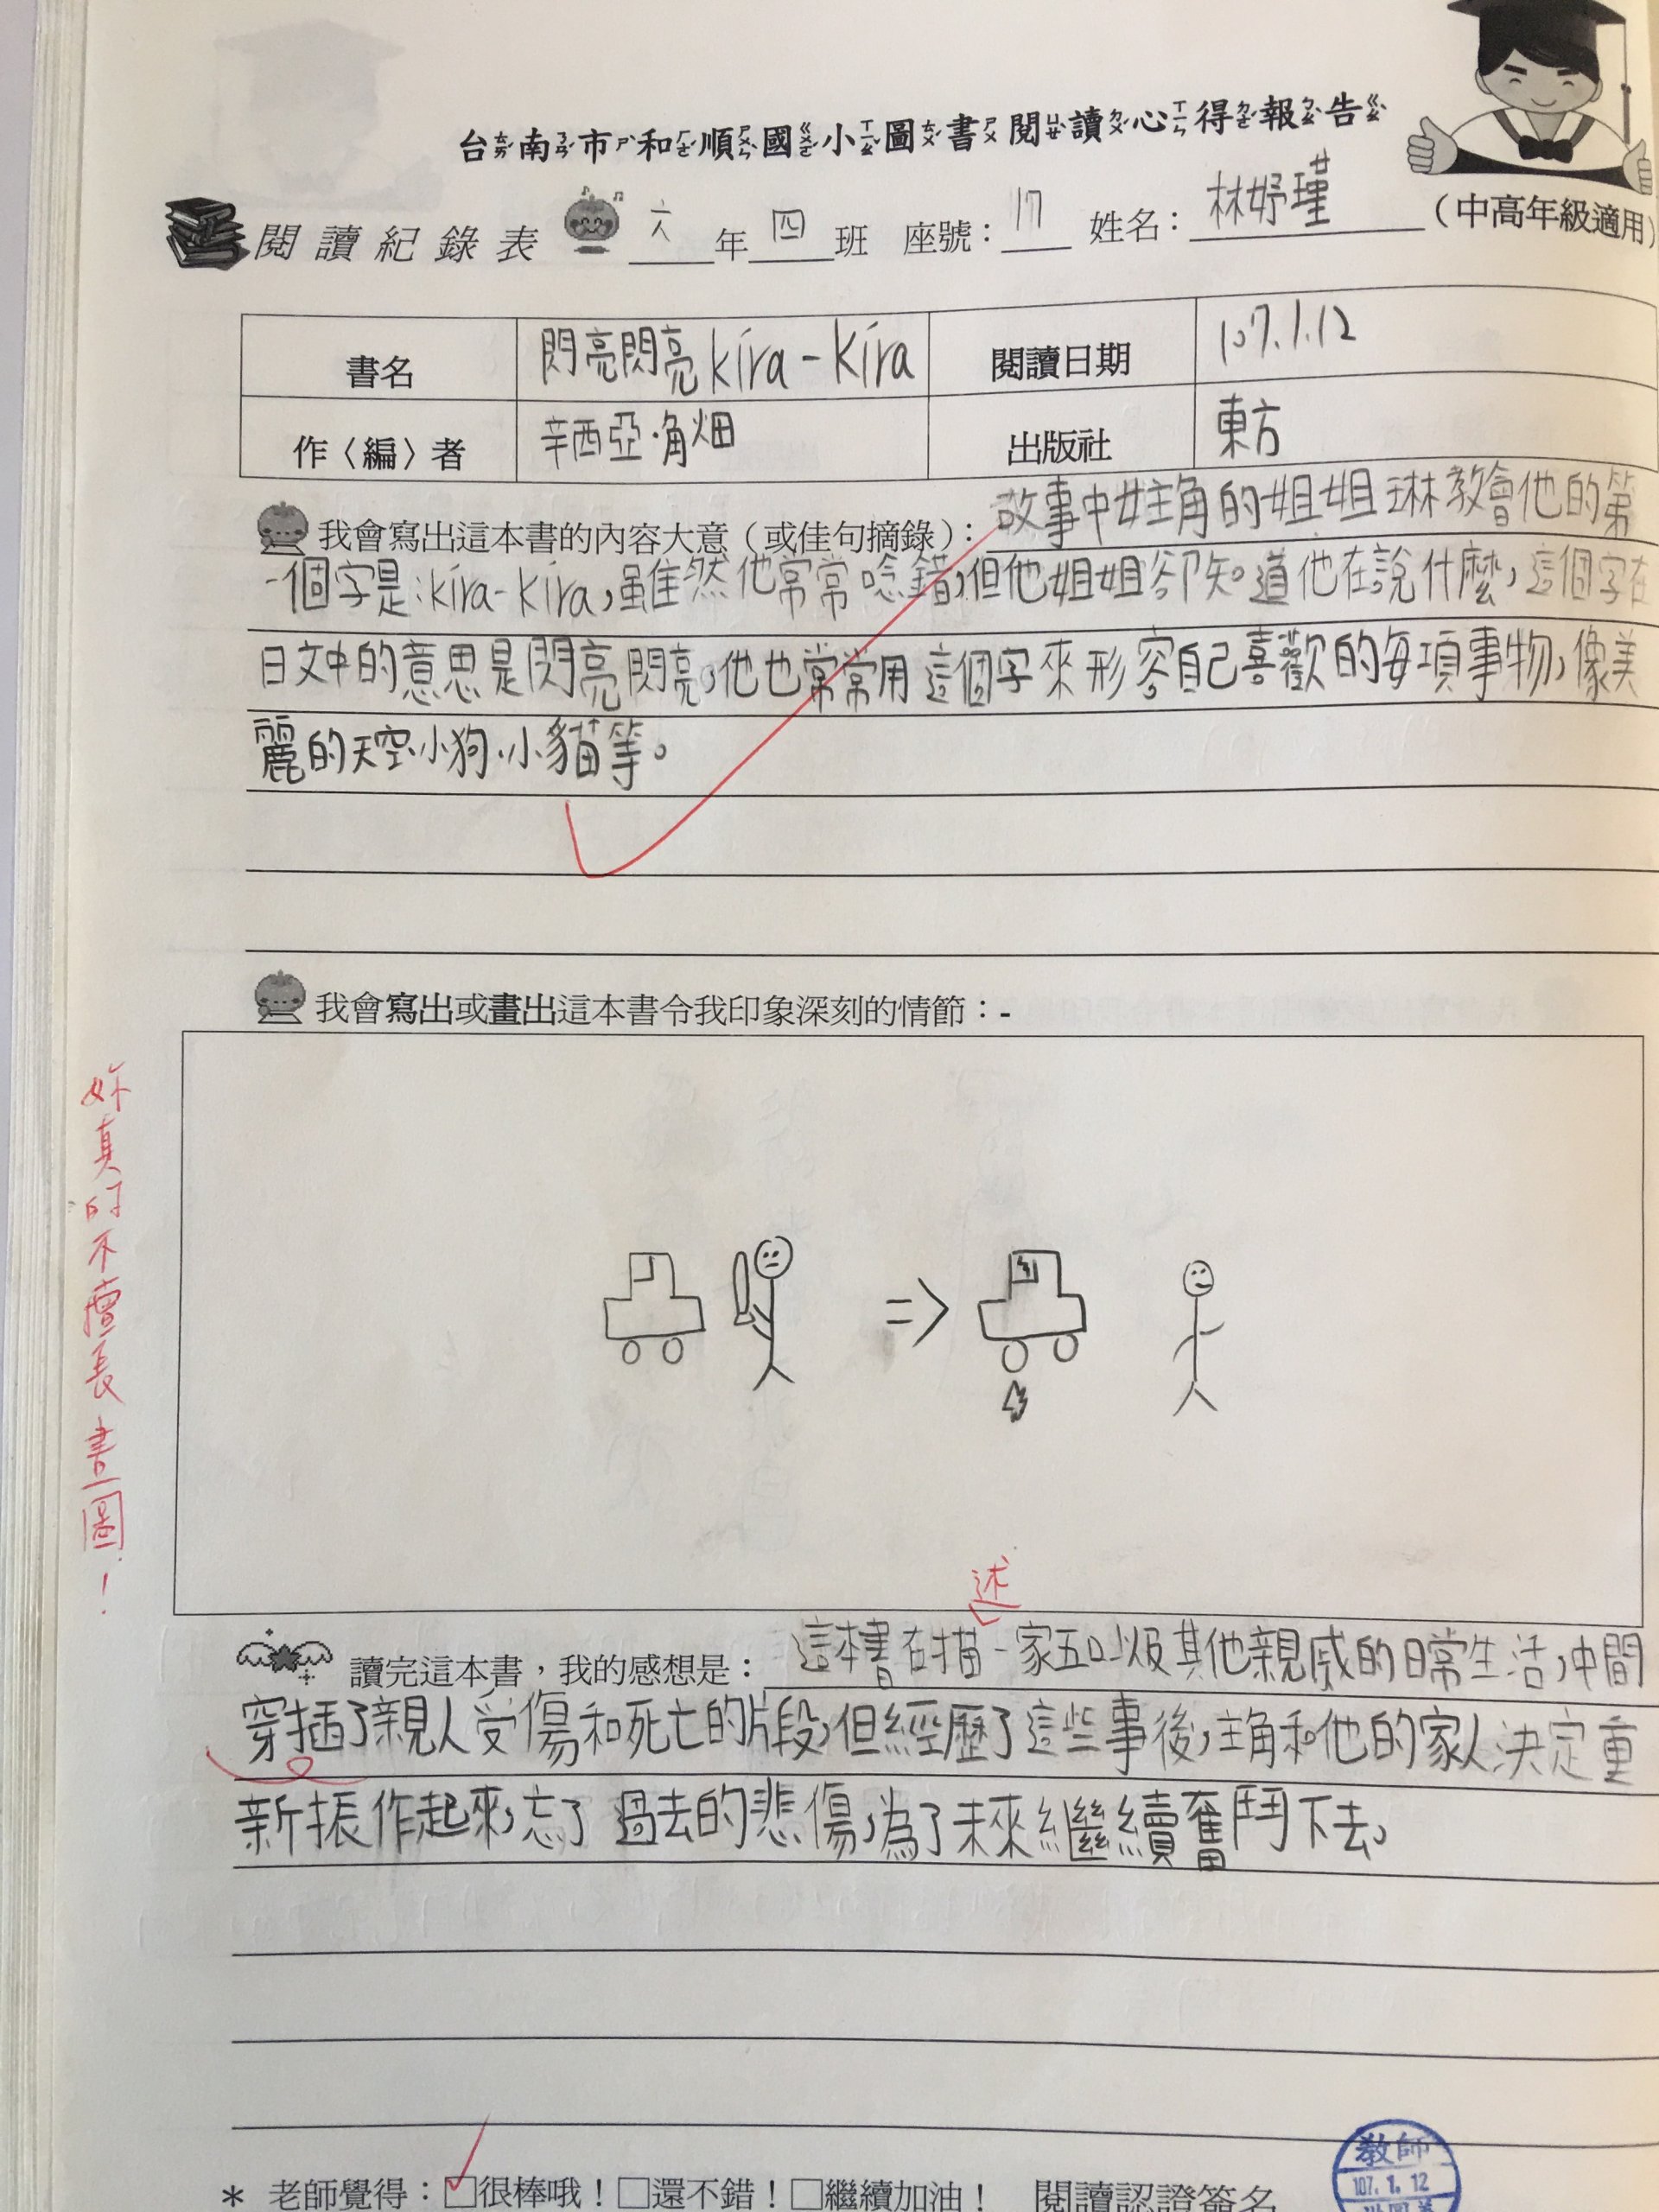 台南市和順國小圖書閱讀心得報告
閱讀紀錄表 六年四班 座號：17 姓名：林妤瑾 （中高年級適用）
書名 閃亮閃亮kira-kira 閱讀日期 107.1.12
作〈編〉者 辛西亞·角畑 出版社 東方
我會寫出這本書的內容大意（或佳句摘錄）：故事中女主角的姐姐琳教會他的第
一個字是:kira-kira,雖然他常常唸錯,但他姐姐卻知道他在說什麼,這個字在
日文中的意思是閃亮閃亮。他也常常用這個字來形容自己喜歡的每項事物,像美
麗的天空、小狗、小貓等。
我會寫出或畫出這本書令我印象深刻的情節：-
妳真的不擅長畫圖！
述
讀完這本書，我的感想是：這本書在描一家五口以及其他親戚的日常生活,中間
穿插了親人受傷和死亡的片段,但經歷了這些事後,主角和他的家人決定重
新振作起來,忘了過去的悲傷,為了未來繼續奮鬥下去,
＊ 老師覺得：☑很棒哦！□還不錯！□繼續加油！ 閱讀認證簽名
教師
107.1.12